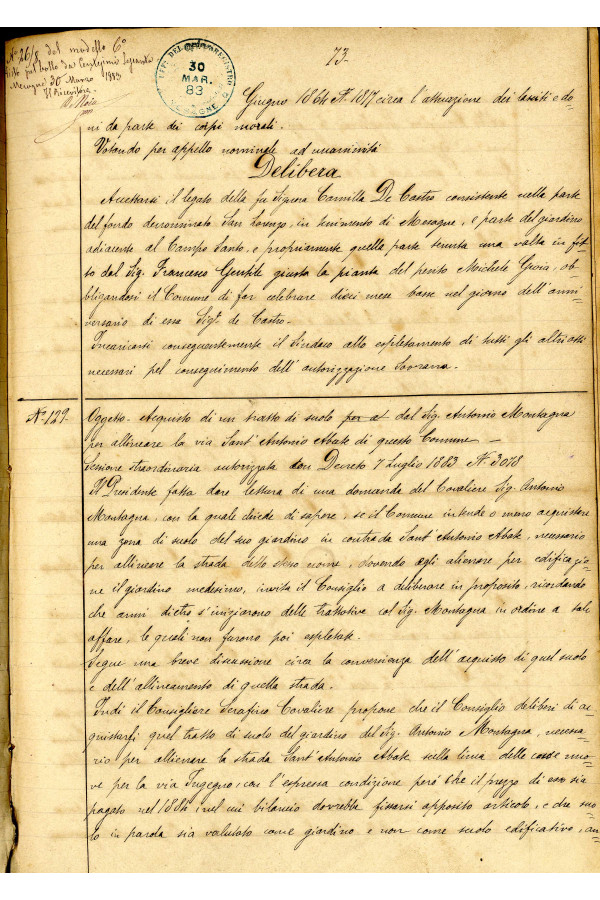 N° 26/8 del modello 6°
Mesagne 30 Marzo 1883
Il Ricevitore
73-
UFF. DEL REGISTRO
30
MAR.
83
MESAGNE
Giugno 1864 N. 1817 circa l'attuazione dei lasciti e do=
ni da parte dei corpi morali.
Votando per appello nominale ad unanimità
Delibera
Accettarsi il legato della fu Signora Camilla De Castro consistente nella parte
del fondo denominato San Lorenzo, in tenimento di Mesagne, e parte del giardino
adiacente al Campo Santo, e propriamente quella parte tenuta una volta in fit=
to dal Sig. Francesco Gentile giusta la pianta del perito Michele Gioia, ob=
bligandosi il Comune di far celebrare dieci messe basse nel giorno dell'anni=
versario di essa Sig.ª de Castro.
Incaricarsi conseguentemente il Sindaco allo espletamento di tutti gli altri atti
necessari pel conseguimento dell'autorizzazione Sovrana.
N. 129.
Oggetto - Acquisto di un tratto di suolo dal Sig. Antonio Montagna
per allineare la via Sant'Antonio Abate di questo Comune -
Sessione straordinaria autorizzata con Decreto 7 Luglio 1883 N. 3078
Il Presidente fatta dare lettura di una domanda del Cavaliere Sig. Antonio
Montagna, con la quale chiede di sapere, se il Comune intende o meno acquistare
una zona di suolo del suo giardino in contrada Sant'Antonio Abate, necessario
per allineare la strada dello stesso nome, dovendo egli alienare per edificazio=
ne il giardino medesimo, invita il Consiglio a deliberare in proposito, ricordando
che anni dietro s'iniziarono delle trattative col Sig. Montagna in ordine a tale
affare, le quali non furono poi espletate.
Segue una breve discussione circa la convenienza dell'acquisto di quel suolo
e dell'allineamento di quella strada.
Indi il Consigliere Serafino Cavaliere propone che il Consiglio deliberi di ac=
quistarsi quel tratto di suolo del giardino del Sig. Antonio Montagna, necessa=
rio per allineare la strada Sant'Antonio Abate sulla linea delle case nuo=
ve per la via Ingegno; con l'espressa condizione però che il prezzo di esso sia
pagato nel 1884, nel cui bilancio dovrebbe fissarsi apposito articolo, e che suo=
lo in parola sia valutato come giardino e non come suolo edificativo, an=